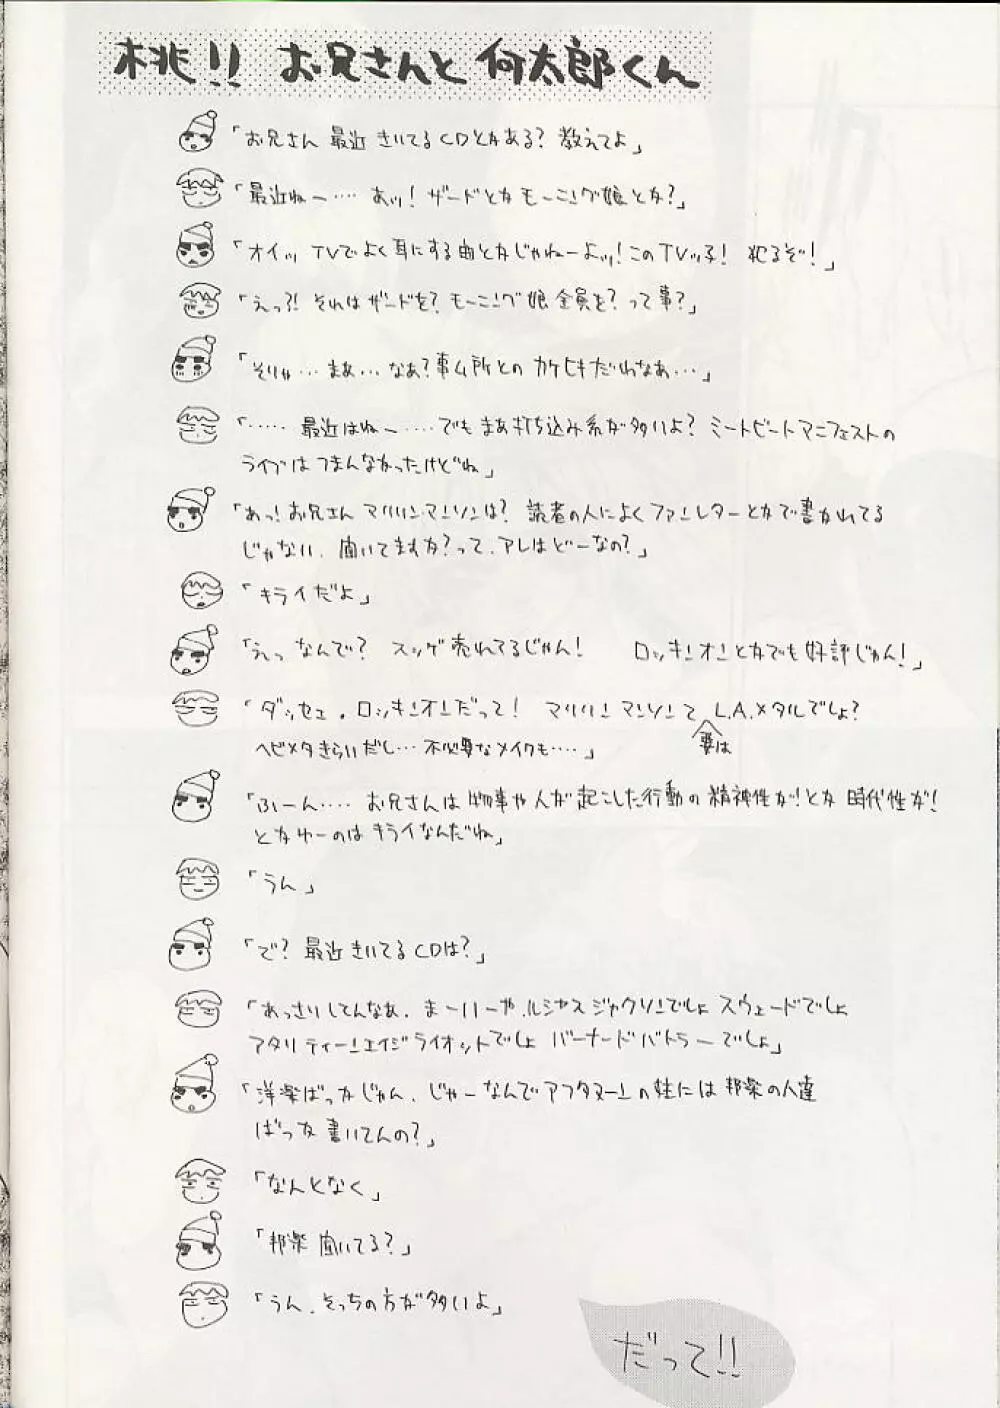 桃!! お兄さんと何太郎くん
「お兄さん 最近 きいてるCDとかある? 教えてよ」
「最近ねー…‥ あッ! ザードとか モーニング娘とか?」
「オイッ TVでよく耳にする曲とかじゃねーよッ! このTVッ子! 犯るぞ!」
「えっ?! それはザードを? モーニング娘全員を? って事?」
「そりゃ…まあ…なあ? 事ム所との カケヒキだわなあ…」
「‥…. 最近はねー…‥でもまあ打ち込み系が多いよ? ミートビートマニフェストの
ライブはつまんなかったけどね」
「あっ! お兄さん マリリンマンソンは? 読者の人によくファンレターとかで書かれてる
じゃない、聞いてますか? って、アレはどーなの?」
「キライだよ」
「えっ なんで? スッゲ売れてるじゃん! ロッキンオンとかでも好評じゃん!」
「ダッセェ。ロッキンオンだって! マリリン マンソンて 要は L.A.メタルでしょ?
ヘビメタきらいだし…不必要なメイクも…‥」
「ふーん…‥ お兄さんは 物事や人が起こした行動の精神性が! とか 時代性が!
とかゆーのは キライなんだね」
「うん」
「で? 最近きいてるCDは?」
「あっさりしてんなあ、まーいーや、ルシャスジャクソンでしょ スウェードでしょ
アタリティーンエイジライオットでしょ バーナードバトラーでしょ」
「洋楽ばっかじゃん、じゃーなんでアフタヌーンの柱には 邦楽の人達
ばっか 書いてんの?」
「なんとなく」
「邦楽 聞いてる?」
「うん、そっちの方が多いよ」
だって!!